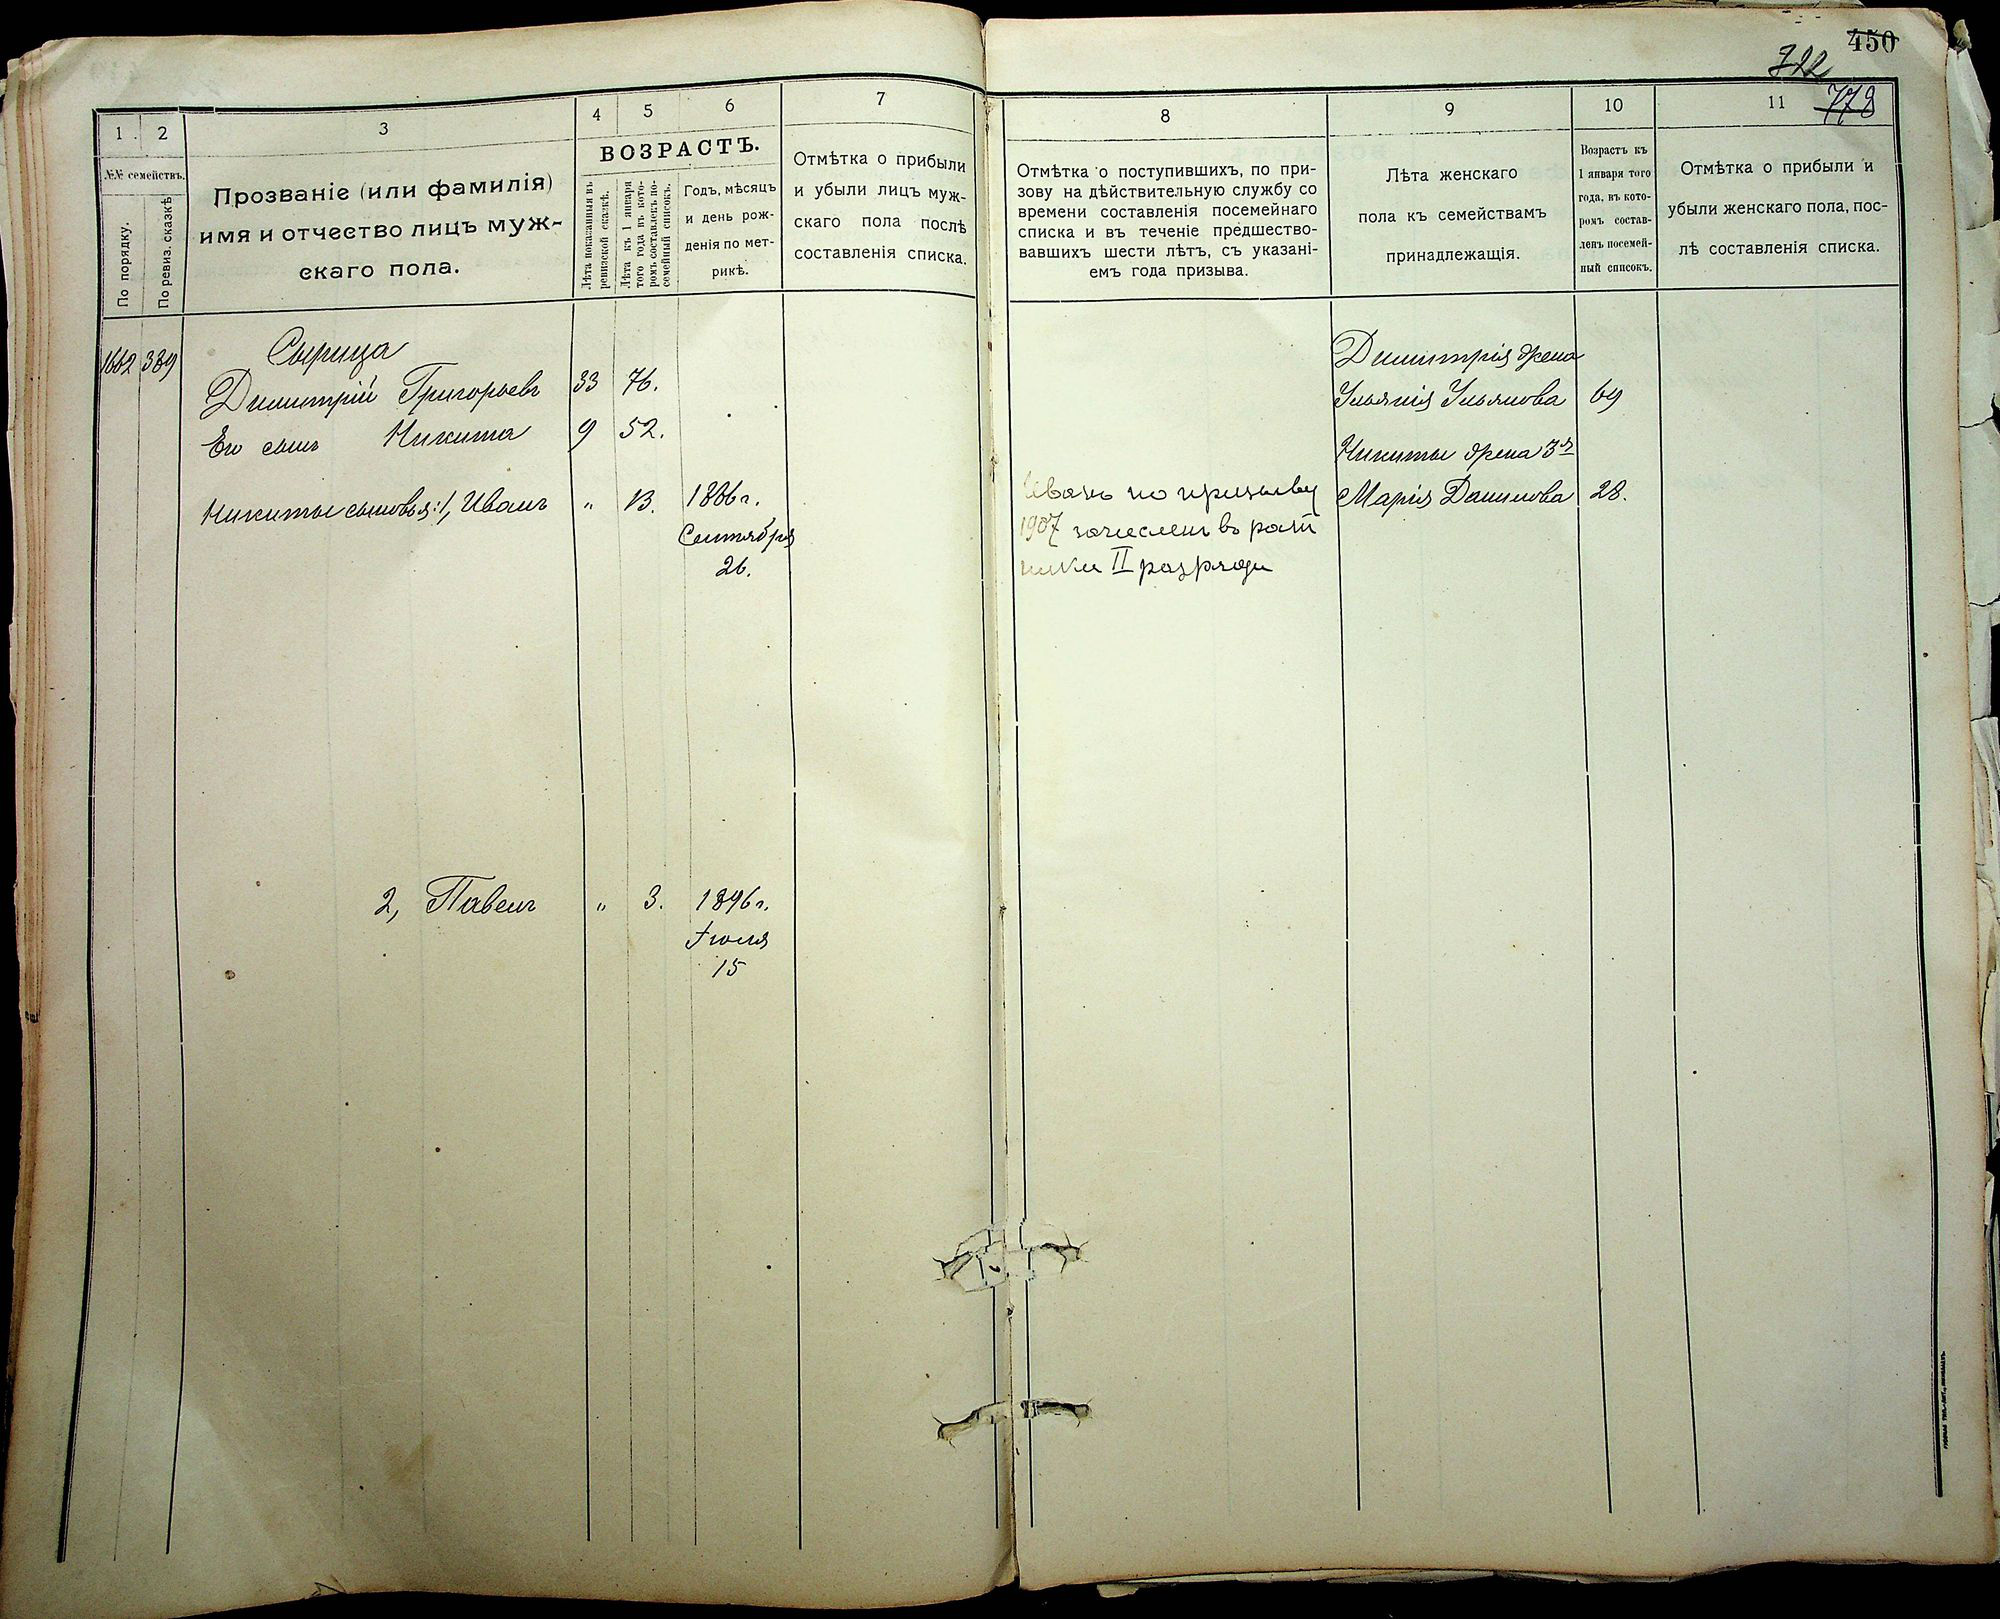 450
722
778
1
2
3
4
5
6
7
№№ семействъ.
По порядку.
По ревиз. сказкѣ
Прозваніе (или фамилія)
имя и отчество лицъ муж-
скаго пола.
ВОЗРАСТЪ.
Лѣта показанныя въ
ревизской сказкѣ.
Лѣта къ 1 января
того года въ кото-
ромъ составленъ по-
семейный списокъ.
Годъ, мѣсяцъ
и день рож-
денія по мет-
рикѣ.
Отмѣтка о прибыли
и убыли лицъ муж-
скаго пола послѣ
составленія списка.
8
9
10
11
Отмѣтка о поступившихъ, по при-
зову на дѣйствительную службу со
времени составленія посемейнаго
списка и въ теченіе предшество-
вавшихъ шести лѣтъ, съ указані-
емъ года призыва.
Лѣта женскаго
пола къ семействамъ
принадлежащія.
Возрастъ къ
1 января того
года, въ кото-
ромъ состав-
ленъ посемей-
ный списокъ.
Отмѣтка о прибыли и
убыли женскаго пола, пос-
лѣ составленія списка.
1662 389 Сырица
Димитрій Григорьевъ 33 76.
Его сынъ Никита 9 52.
Никиты сыновья: 1, Иванъ „ 13. 1886 г.
Сентября
26.
2, Павелъ „ 3. 1896 г.
Іюля
15
Иванъ по призыву
1907 зачисленъ въ рат
ники II разряда
Димитрія жена
Ульянія Ульянова 69
Никиты жена 3я
Марія Данилова 28.